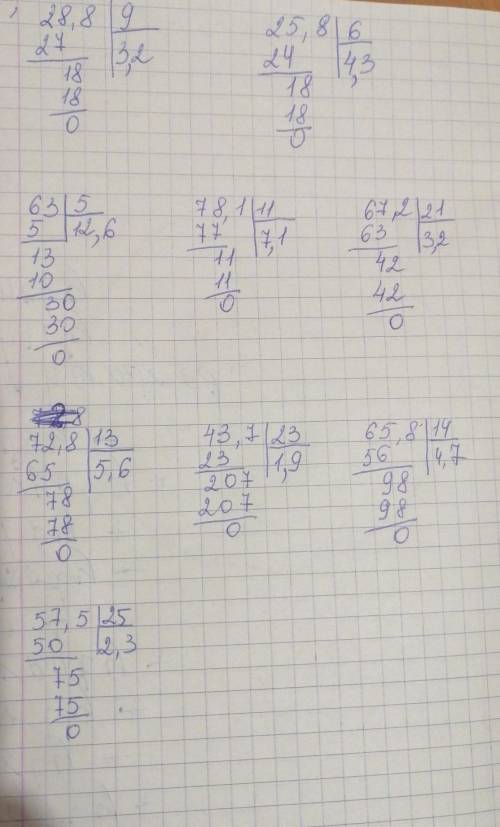 28,8 9 25,8 6
27 3,2 24 4,3
18 18
18 18
0 0
63 5 78,1 11 67,2 21
5 12,6 77 7,1 63 3,2
13 11 42
10 11 42
30 0 0
30
0
72,8 13 43,7 23 65,8 14
65 5,6 23 1,9 56 4,7
78 207 98
78 207 98
0 0 0
57,5 25
50 2,3
75
75
0